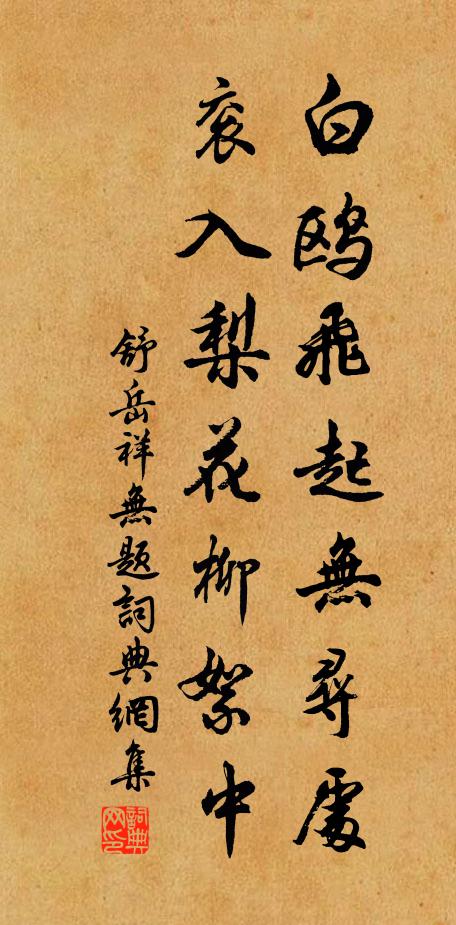 白鸥飛起無尋處
衮入梨花柳絮中
舒岳祥無题詞典網集
詞典网印